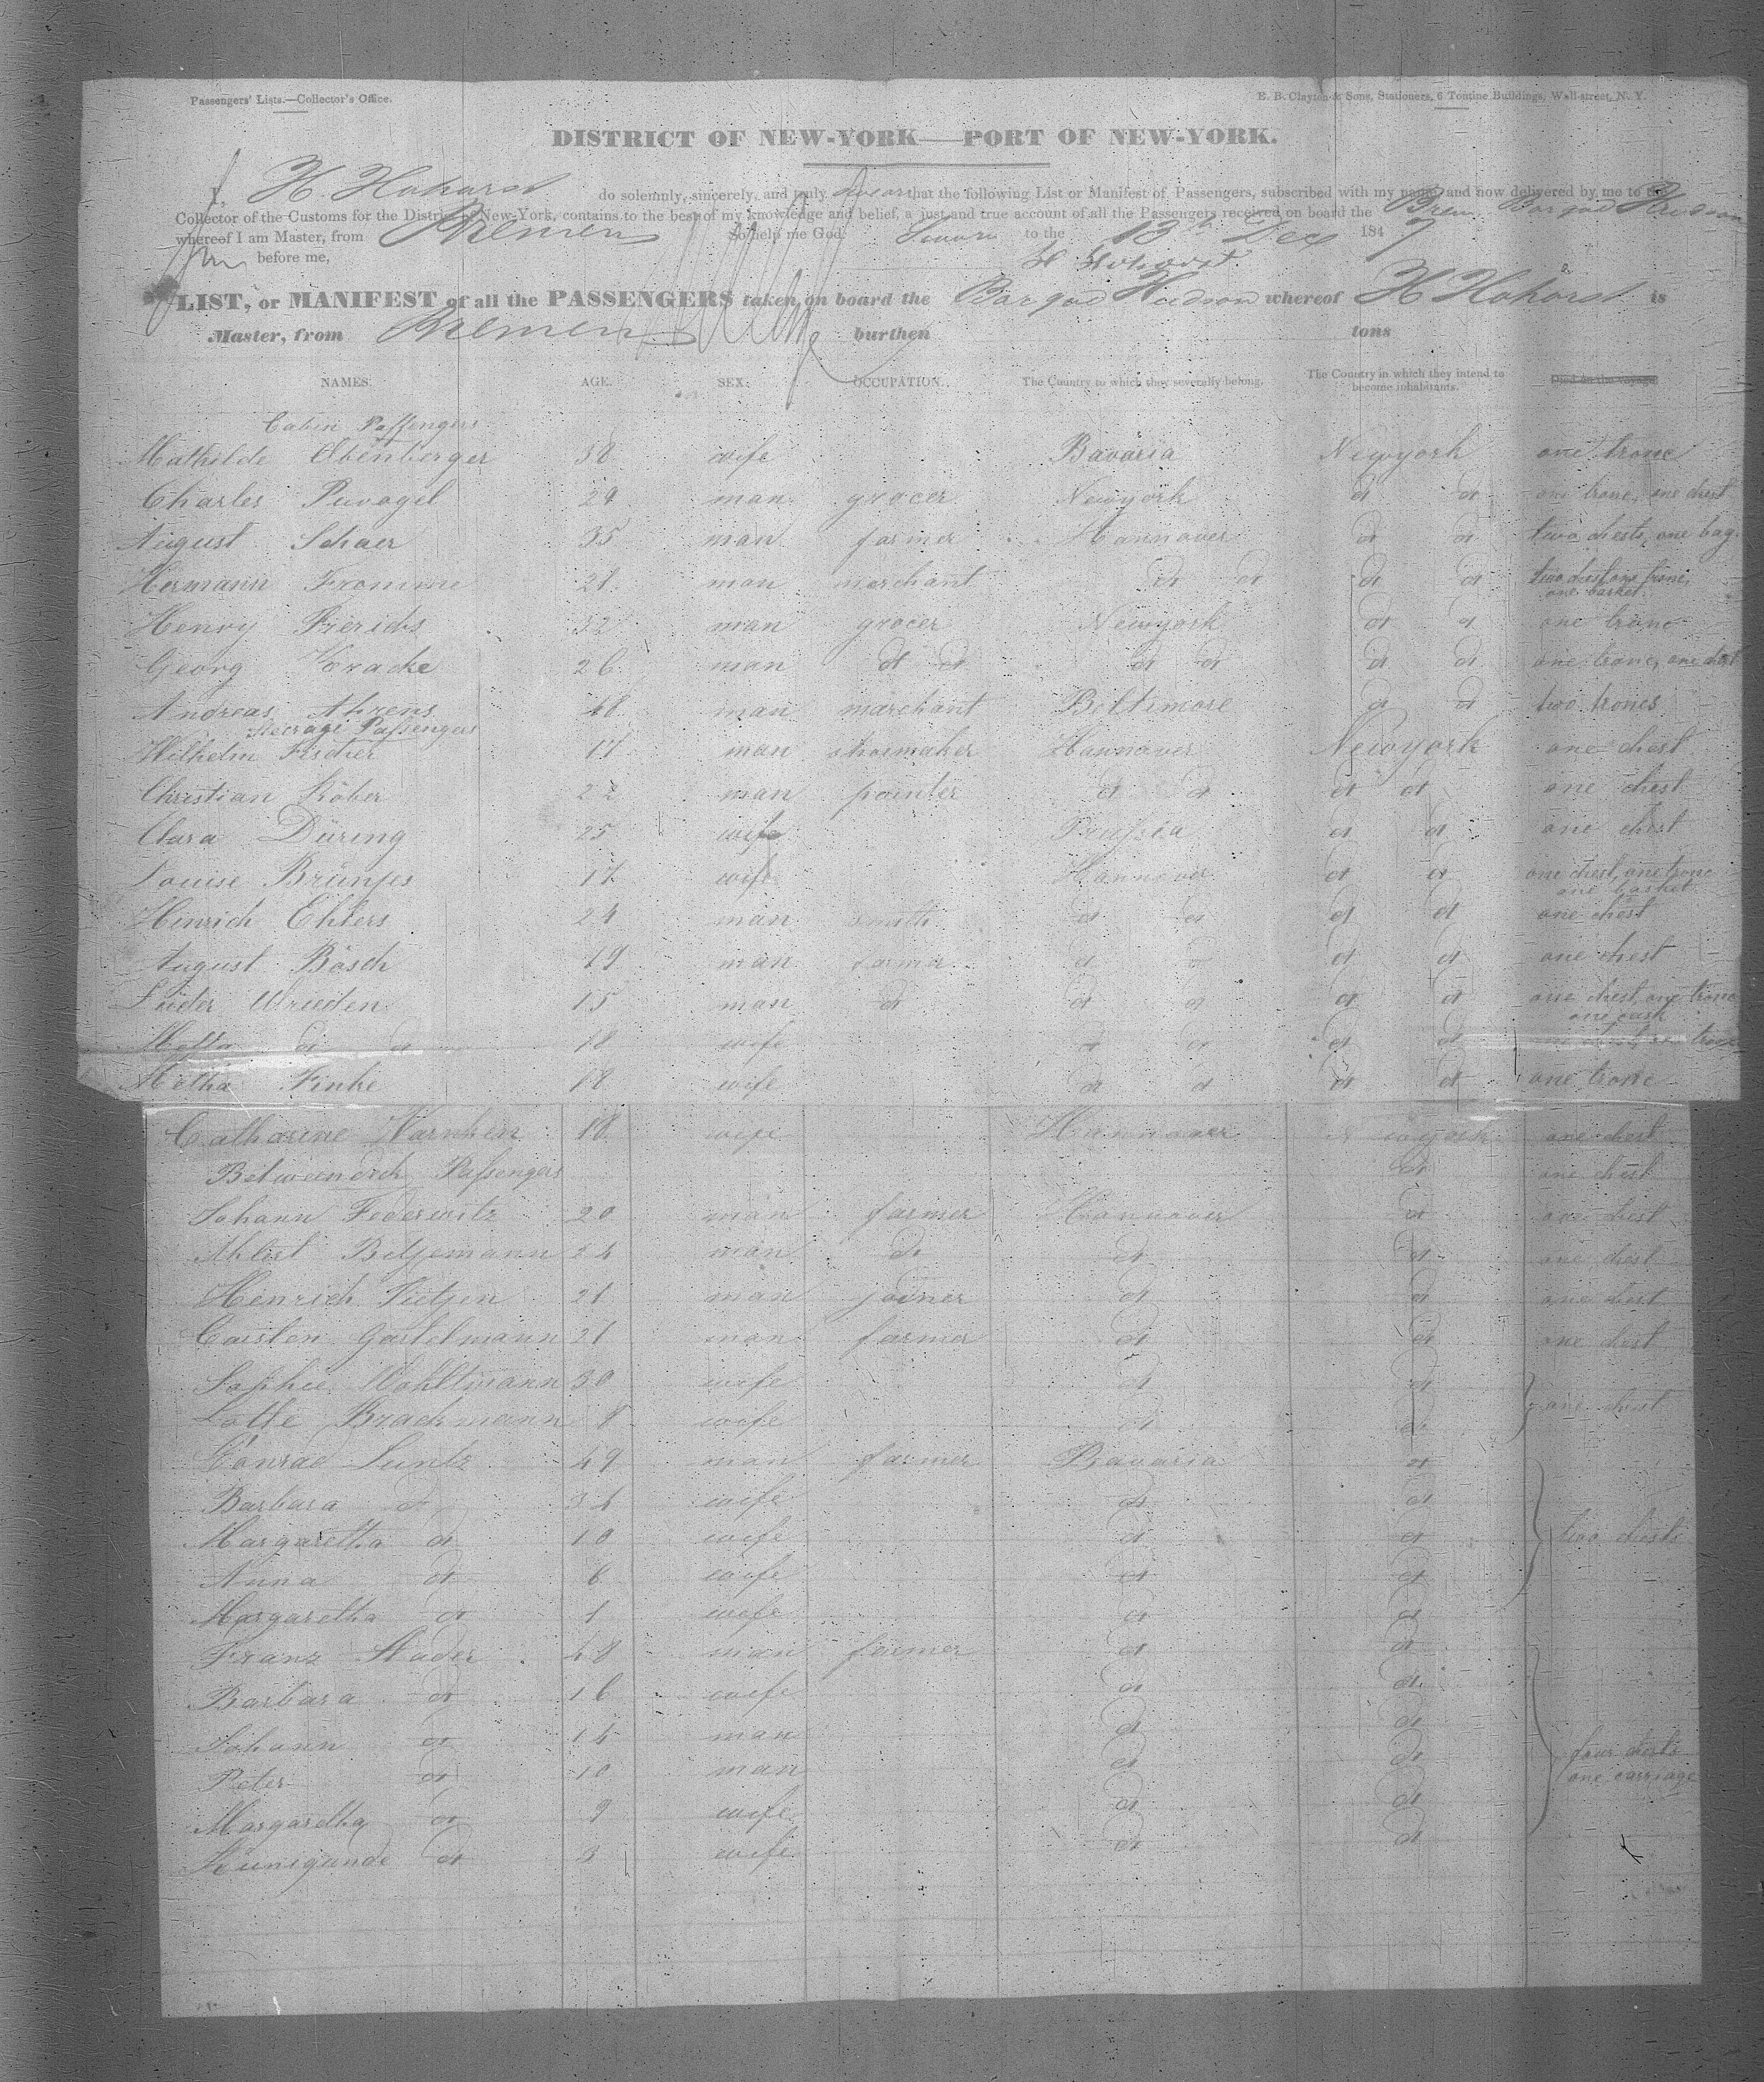 Passengers' Lists.—Collector's Office.
E. B. Clayton & Sons, Stationers, 6 Tontine Buildings, Wall-street, N. Y.
DISTRICT OF NEW-YORK—PORT OF NEW-YORK.
I, H. Hohorst do solemnly, sincerely, and truly swear that the following List or Manifest of Passengers, subscribed with my name, and now delivered by me to the
Collector of the Customs for the District of New-York, contains to the best of my knowledge and belief, a just and true account of all the Passengers received on board the Brem Barque Hudson
whereof I am Master, from Bremen So help me God. Sworn to the 13th Dec 1847
before me, H Hohorst
LIST, or MANIFEST of all the PASSENGERS taken on board the Barque Hudson whereof H Hohorst is
Master, from Bremen burthen tons
NAMES. AGE. SEX. OCCUPATION. The Country to which they severally belong. The Country in which they intend to become inhabitants. Died on the voyage
Cabin Passengers
Mathilde Ebenberger 38 wife Bavaria Newyork one tronc
Charles Puvogel 29 man grocer Newyork do do one tronc, one chest
August Schaer 35 man farmer Hannover do do two chests, one bag
Hermann Fromme 21 man merchant do do do do two chest one tronc, one basket
Henry Frerichs 32 man grocer Newyork do do one tronc
Georg Kracke 26 man do do do do do do one tronc, one chest
Andreas Ahrens 48 man marchant Baltimore do do two troncs
Steerage Passengers
Wilhelm Fischer 17 man shoemaker Hannover Newyork one chest
Christian Köber 22 man painter do do do do one chest
Clara Düring 25 wife Prussia do do one chest
Louise Brünjes 17 wife Hannover do do one chest, one tronc one basket
Hinrich Ehlers 24 man smith do do do do one chest
August Bösch 19 man farmer do do do do one chest
Lüder Wrieden 15 man do do do do do one chest, one tronc one cask
Metta do do 18 wife do do do do
Metha Finke 18 wife do do do do one tronc
Catharine Harnken 18 wife Hannover Newyork one chest
Betweendeck Passengers do one chest
Johann Federwitz 20 man farmer Hannover do one chest
Ahlert Betjemann 24 man do do do one chest
Henrich Tietjen 21 man joiner do do one chest
Carsten Gastelmann 21 man farmer do do one chest
Sophie Wohltmann 30 wife do do
Lotte Brachmann 8 wife do do one chest
Conrad Luntz 49 man farmer Bavaria do
Barbara do 34 wife do do
Margaretha do 10 wife do do two chests
Anna do 6 wife do do
Margaretha do 1 wife do do
Franz Stader 48 man farmer do do
Barbara do 16 wife do do
Johann do 14 man do do
Peter do 10 man do do four chests one carriage
Margaretha do 9 wife do do
Kunigunde do 3 wife do do